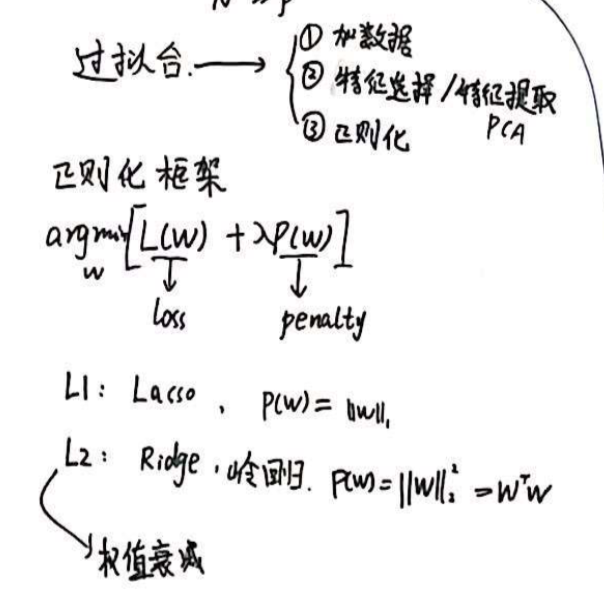 过拟合. → ① 加数据
② 特征选择/特征提取
PCA
③ 正则化
正则化 框架
argmin[L(W) + λP(W)]
w
↓ ↓
loss penalty
L1: Lasso , P(W) = ||W||₁
L2: Ridge , 岭回归. P(W) = ||W||₂² = WᵀW
→ 权值衰减